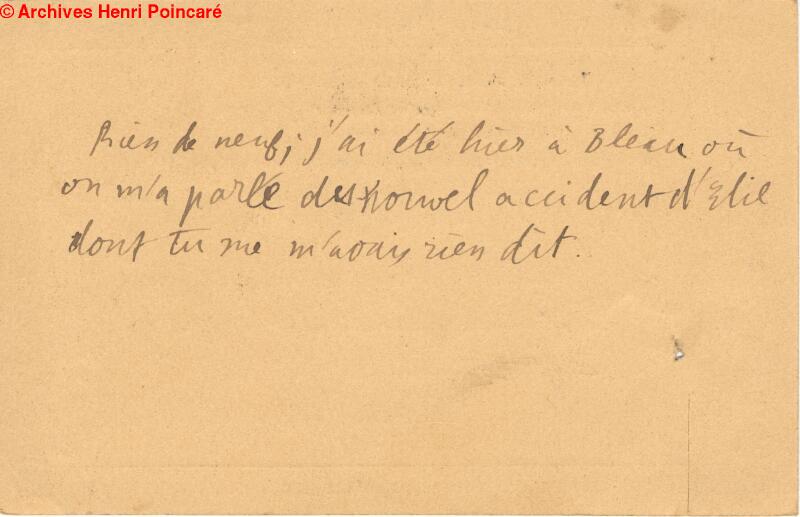 © Archives Henri Poincaré
Rien de neuf; j'ai été hier à Bleau où
on m'a parlé du nouvel accident d'Elie
dont tu ne m'avais rien dit.